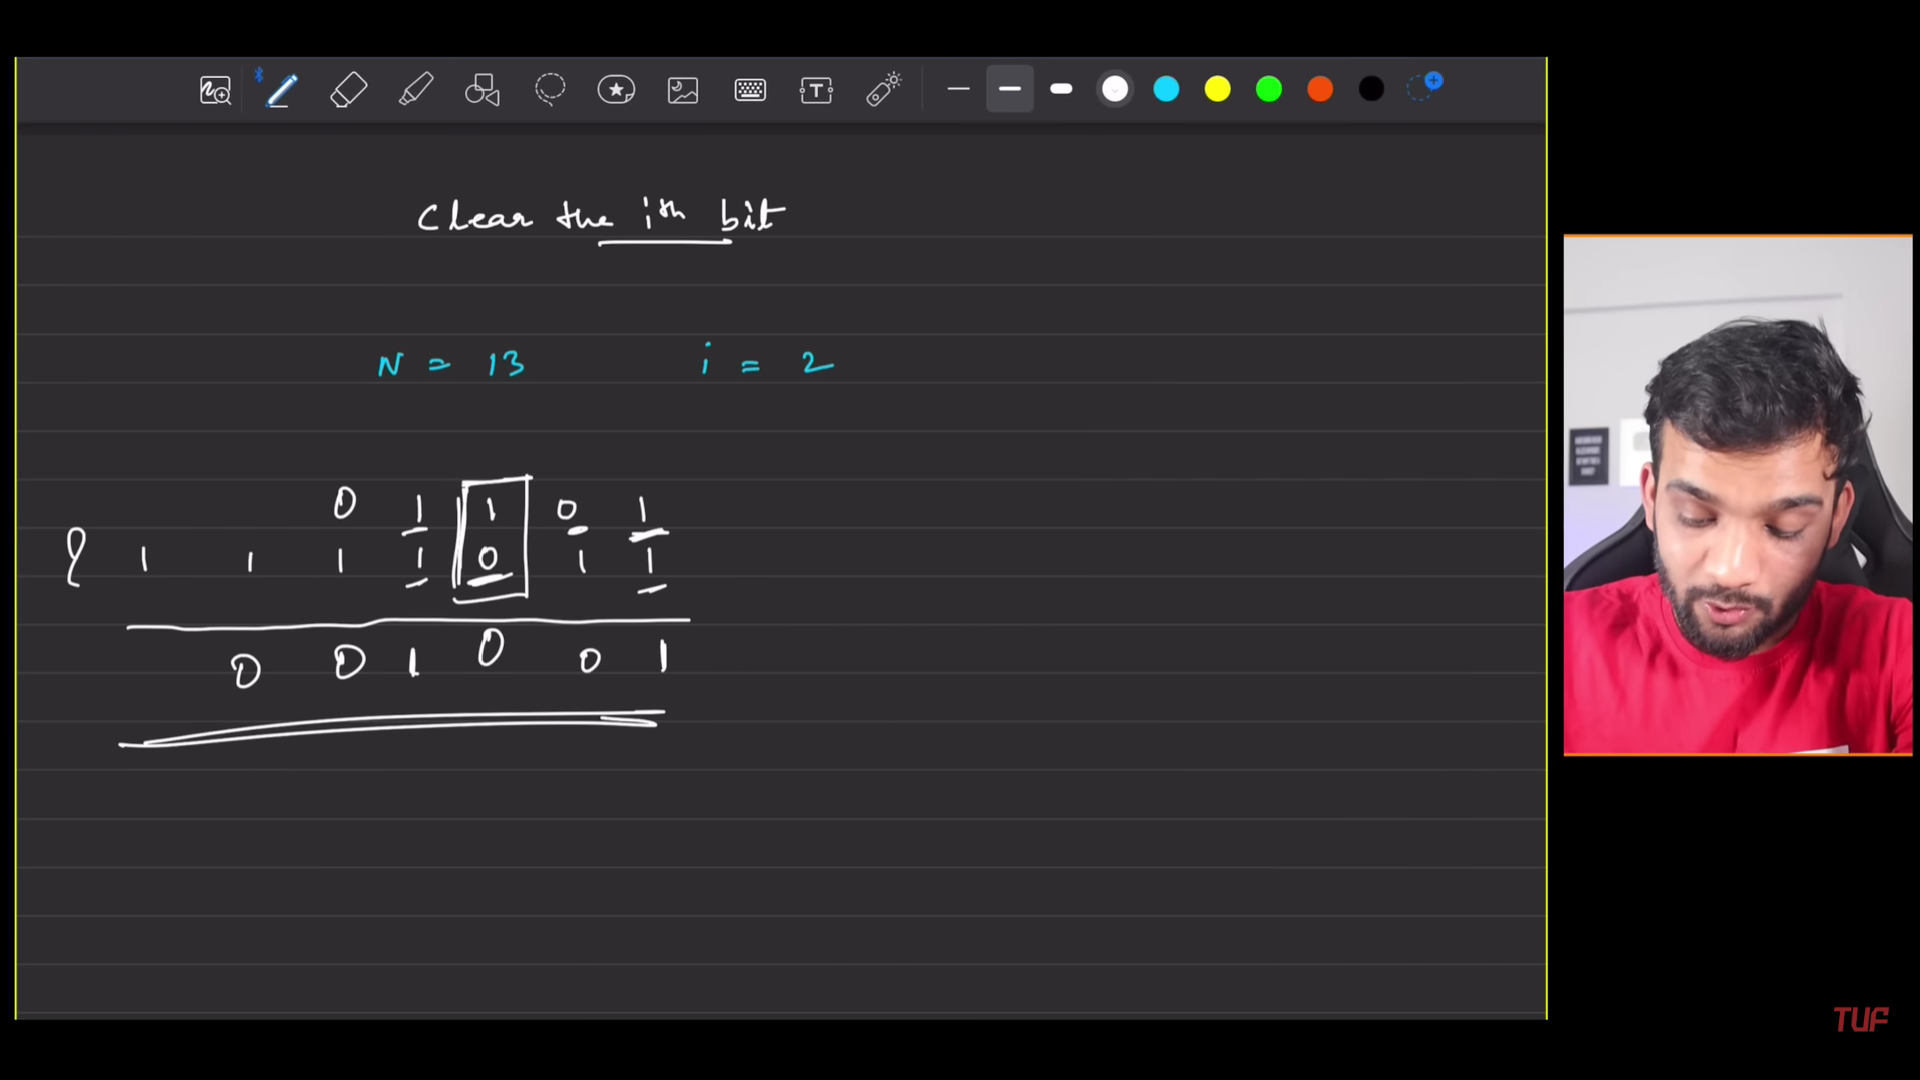 Clear the ith bit
N = 13 i = 2
0 1 1 0 1
& 1 1 1 1 0 1 1
0 0 1 0 0 1
TUF